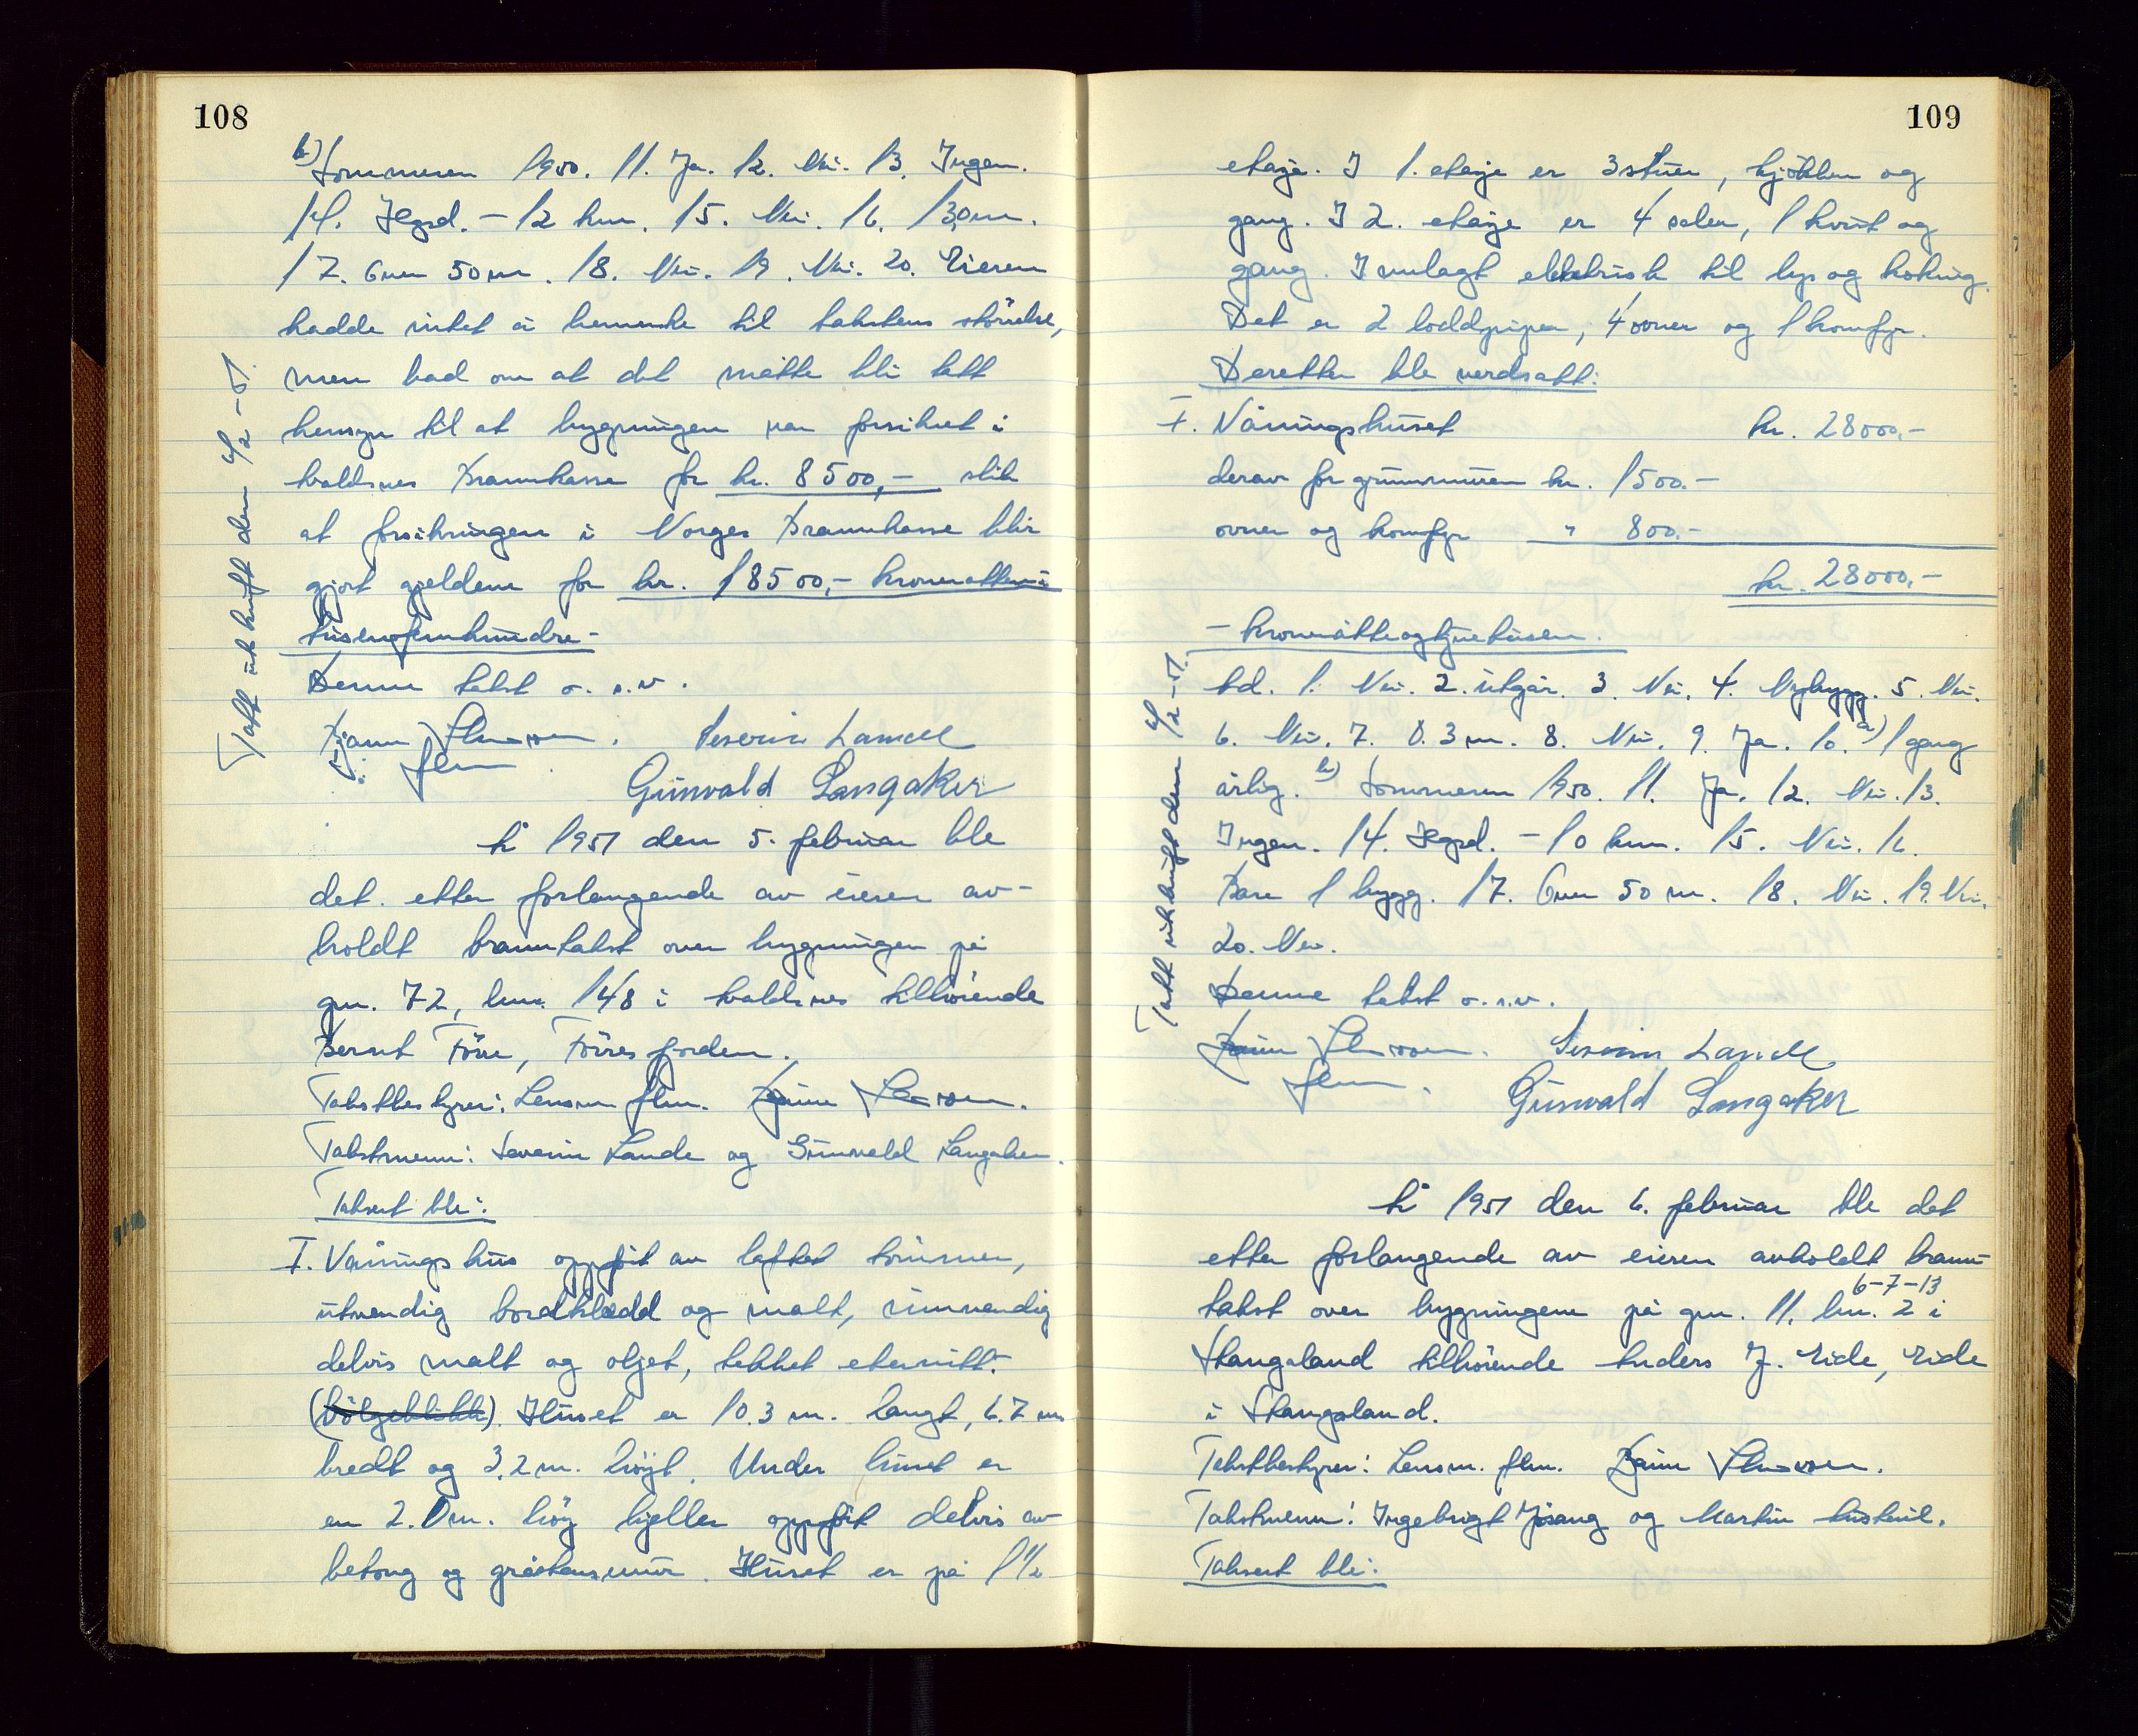 108
b) Sommeren 1950. 11. Ja. 12. Nei. 13. Ingen.
14. Hgsd. - 12 km. 15. Nei. 16. 130 m.
17. Over 50 m. 18. Nei. 19. Nei. 20. Eieren
hadde intet å bemerke til takstens störrelse,
men bad om at det måtte bli tatt
hensyn til at bygningen var forsikret i
Avaldsnes Brannkasse for kr. 8500,- slik
at forsikringen i Norges Brannkasse blir
gjort gjeldene for kr. 18500,- kroneratten-
tusenfemhundre-
Denne takst o.s.v.
Severin Lande
flm
Gunvald Langaker
Tatt utskrift den 6/2-51.
År 1951 den 5. februar ble
det etter forlangende av eieren av-
holdt branntakst over bygningen på
gnr. 72, bnr. 148 i Avaldsnes tilhörende
Bernt Förre, Förresfjorden.
Takstbestyrer: Lensm. flm.
Takstmenn: Severin Lande og Gunvald Langaker.
Taksert ble:
I. Våningshus oppfört av laftet tömmer,
utvendig bordkledd og malt, innvendig
delvis malt og oljet, tekket eternitt.
(bölgeblikk). Huset er 10.3 m. langt, 6.7 m
bredt og 3.2 m. höyt. Under huset er
en 2.0 m. höy kjeller oppfört delvis av
betong og gråstensmur. Huset er på 1 1/2
109
etasje. I 1. etasje er 3 stuer, kjökken og
gang. I 2. etasje er 4 soler, 1 kvist og
gang. Innlagt elektrisk til lys og koking.
Det er 2 loddpiper, 4 ovner og 1 komfyr.
Deretter ble verdsatt:
I. Våningshuset kr. 28000,-
derav for grunnmuren kr. 1500.-
ovner og komfyr " 800.-
kr. 28000,-
- kroneråtteogtjuetusen.
Ad. 1. Nei. 2. utgår. 3. Nei. 4. Nybygg. 5. Nei.
6. Nei. 7. 0.3 m. 8. Nei. 9. Ja. 10. a) 1 gang
årlig. b) Sommeren 1950. 11. Ja. 12. Nei. 13.
Ingen. 14. Hgsd. - 10 km. 15. Nei. 16.
Bare 1 bygg. 17. Over 50 m. 18. Nei. 19. Nei.
20. Nei.
Denne takst o.s.v.
Severin Lande
flm.
Gunvald Langaker
Tatt utskrift den 6/2-51.
År 1951 den 6. februar ble det
etter forlangende av eieren avholdt brann-
6-7-13
takst over bygningene på gnr. 11, bnr. 2 i
Skangaland tilhörende Anders J. Eide, Eide
i Skangaland.
Takstbestyrer: Lensm. flm.
Takstmenn: Ingebrigt Mjösang og Martin Austevik.
Taksert ble: